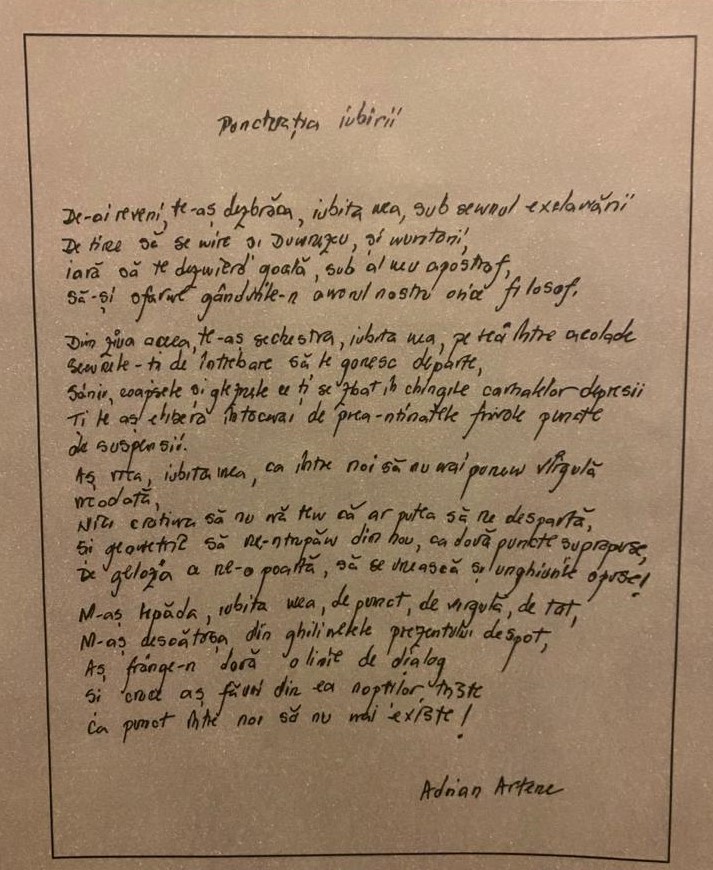 Punctuația iubirii
De-ai reveni, te-aș dezbrăca, iubita mea, sub semnul exclamării
De tine să se mire și Dumnezeu, și muritorii,
iară să te dezmierd goală, sub al meu apostrof,
Să-și sfarme gândurile-n amorul nostru orice filosof.
Din ziua aceea, te-aș sechestra, iubita mea, pe veci între acolade
Semnele-ți de întrebare să le gonesc departe,
Sânii, coapsele și gleznele ce ți se zbat în chingile carnalelor depresii
Ți le-aș elibera întocmai de prea-ntinatele frivole puncte
de suspensii.
Aș vrea, iubita mea, ca între noi să nu mai punem virgulă
niciodată,
Nici cratima să nu mă tem că ar putea să ne despartă,
Și geometric să ne-ntrupăm din nou, ca două puncte suprapuse,
De gelozia ce ne-o poartă, să se unească și unghiurile opuse!
M-aș lepăda, iubita mea, de punct, de virgulă, de tot,
M-aș descătușa din ghilimelele prezentului despot,
Aș frânge-n două o linie de dialog
Și cruce aș făuri din ea nopților triste
Ca punct între noi să nu mai existe!
Adrian Artene